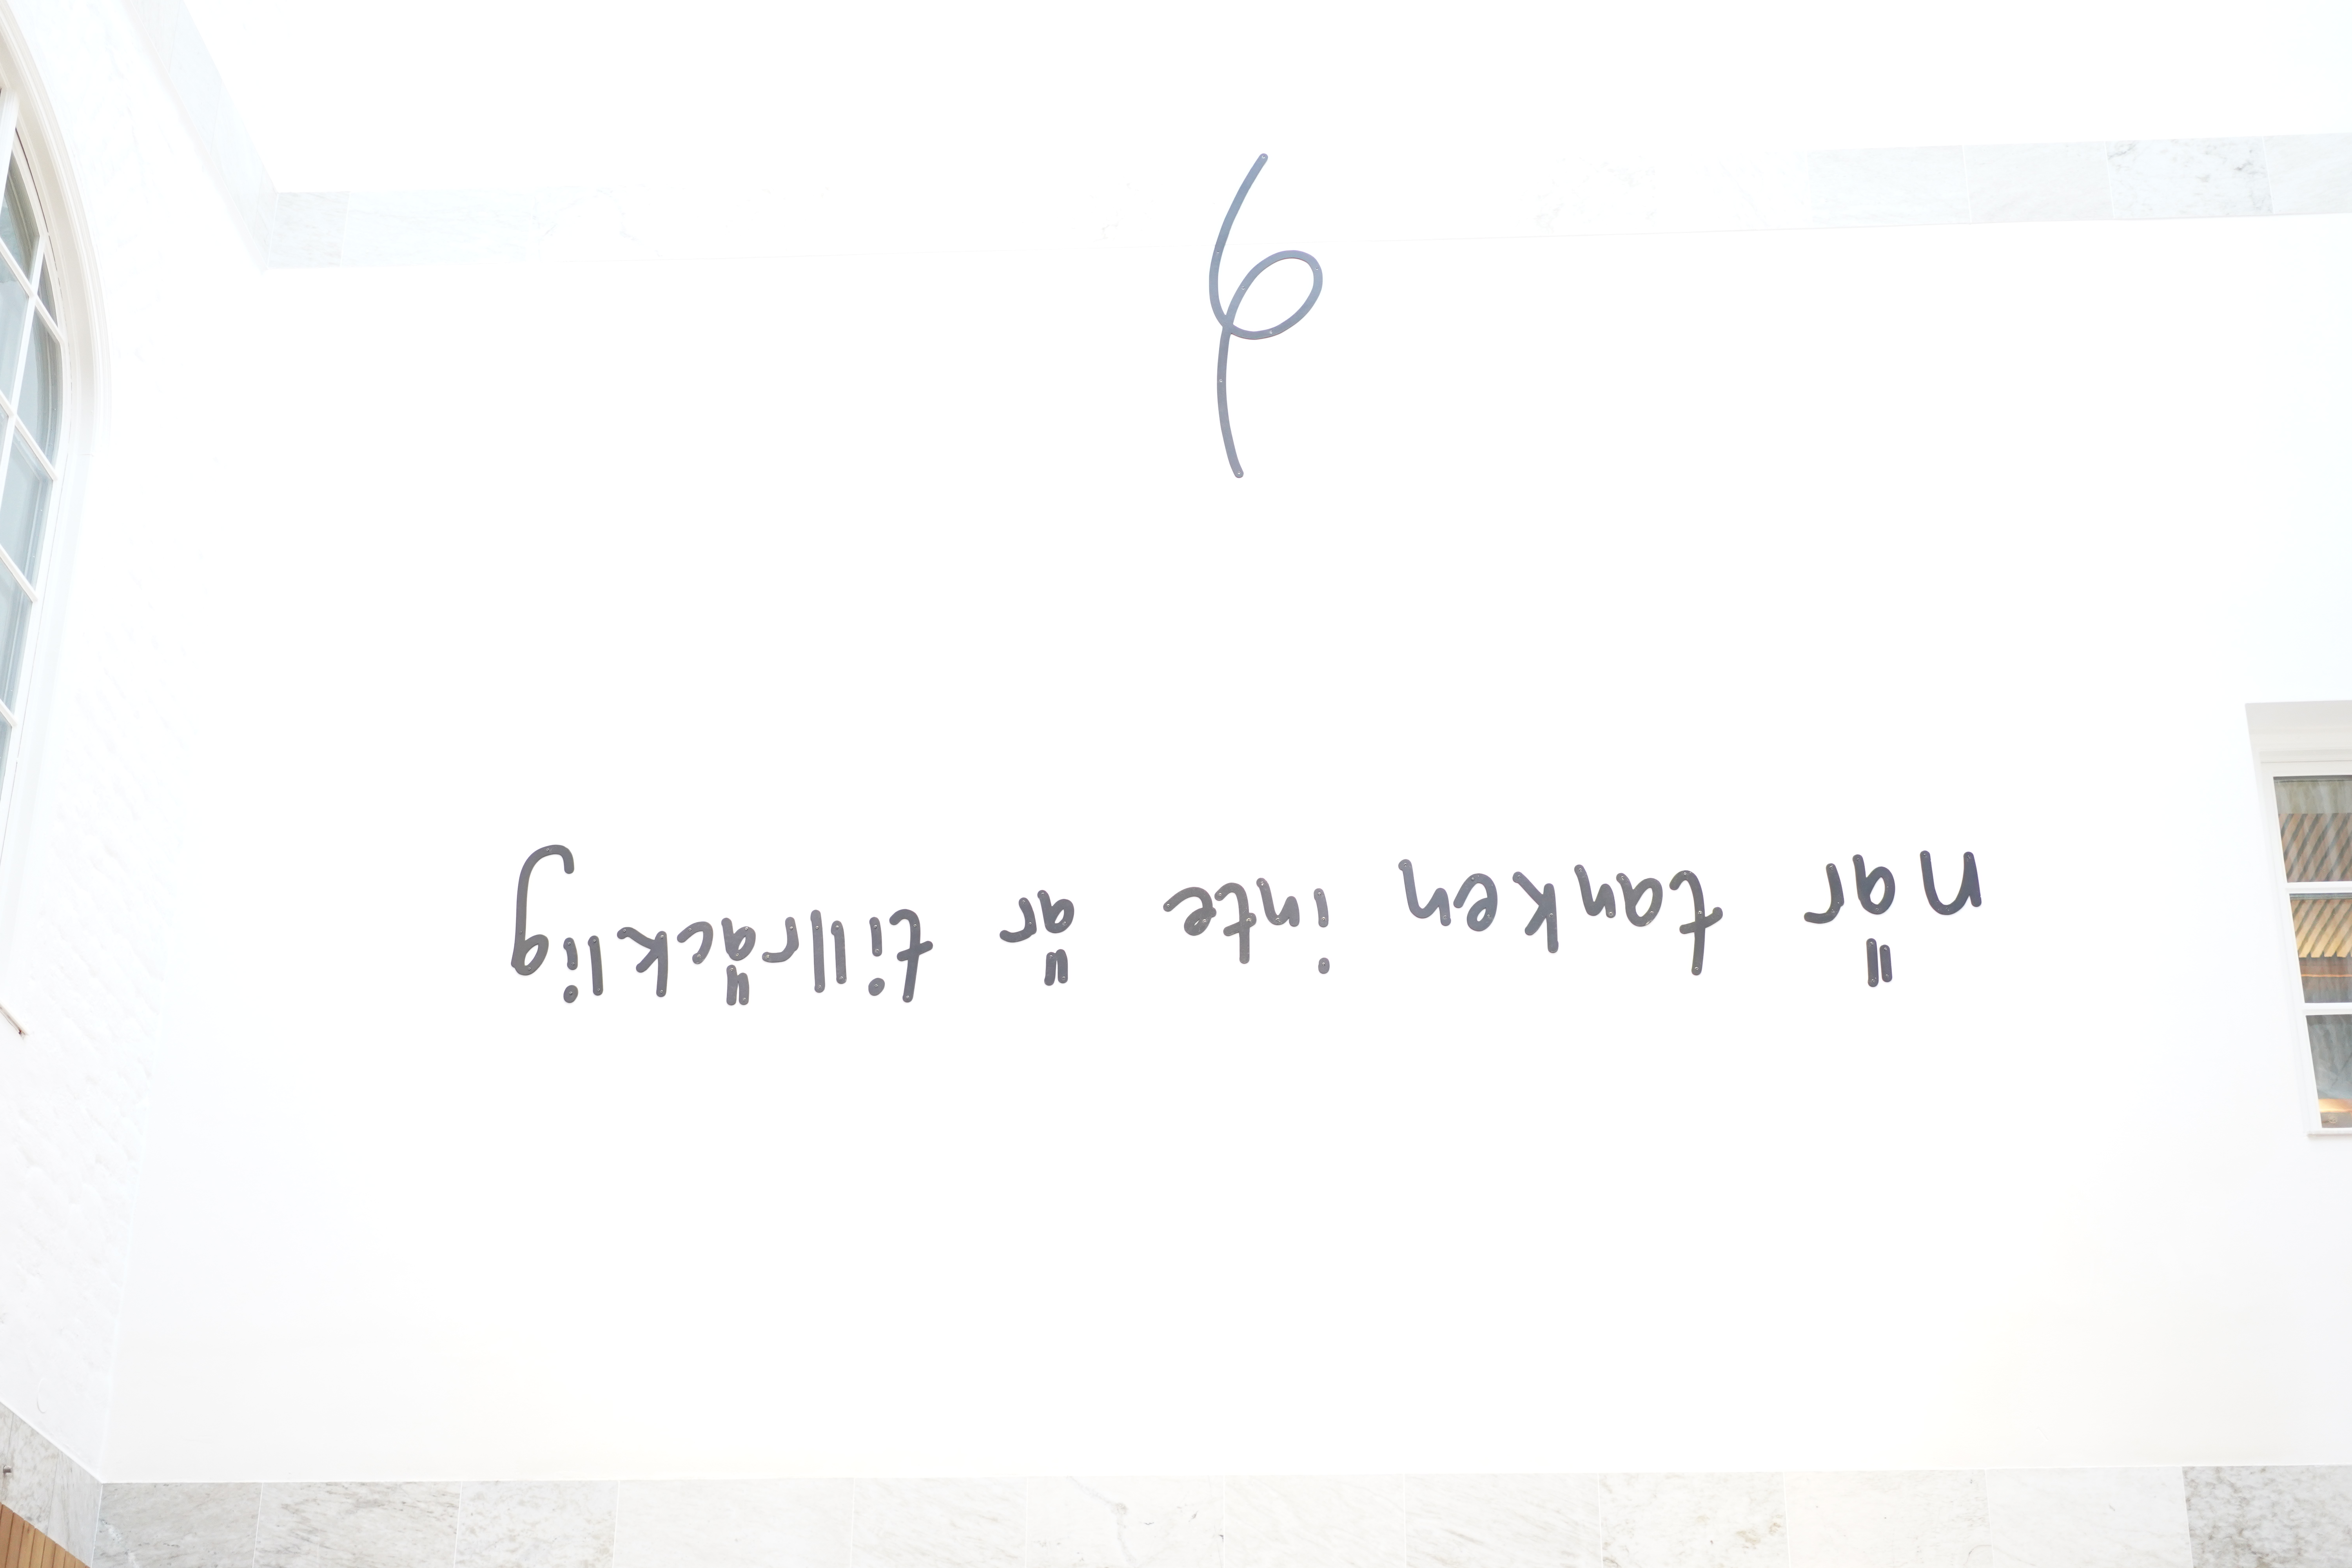 när tanken inte är tillräcklig